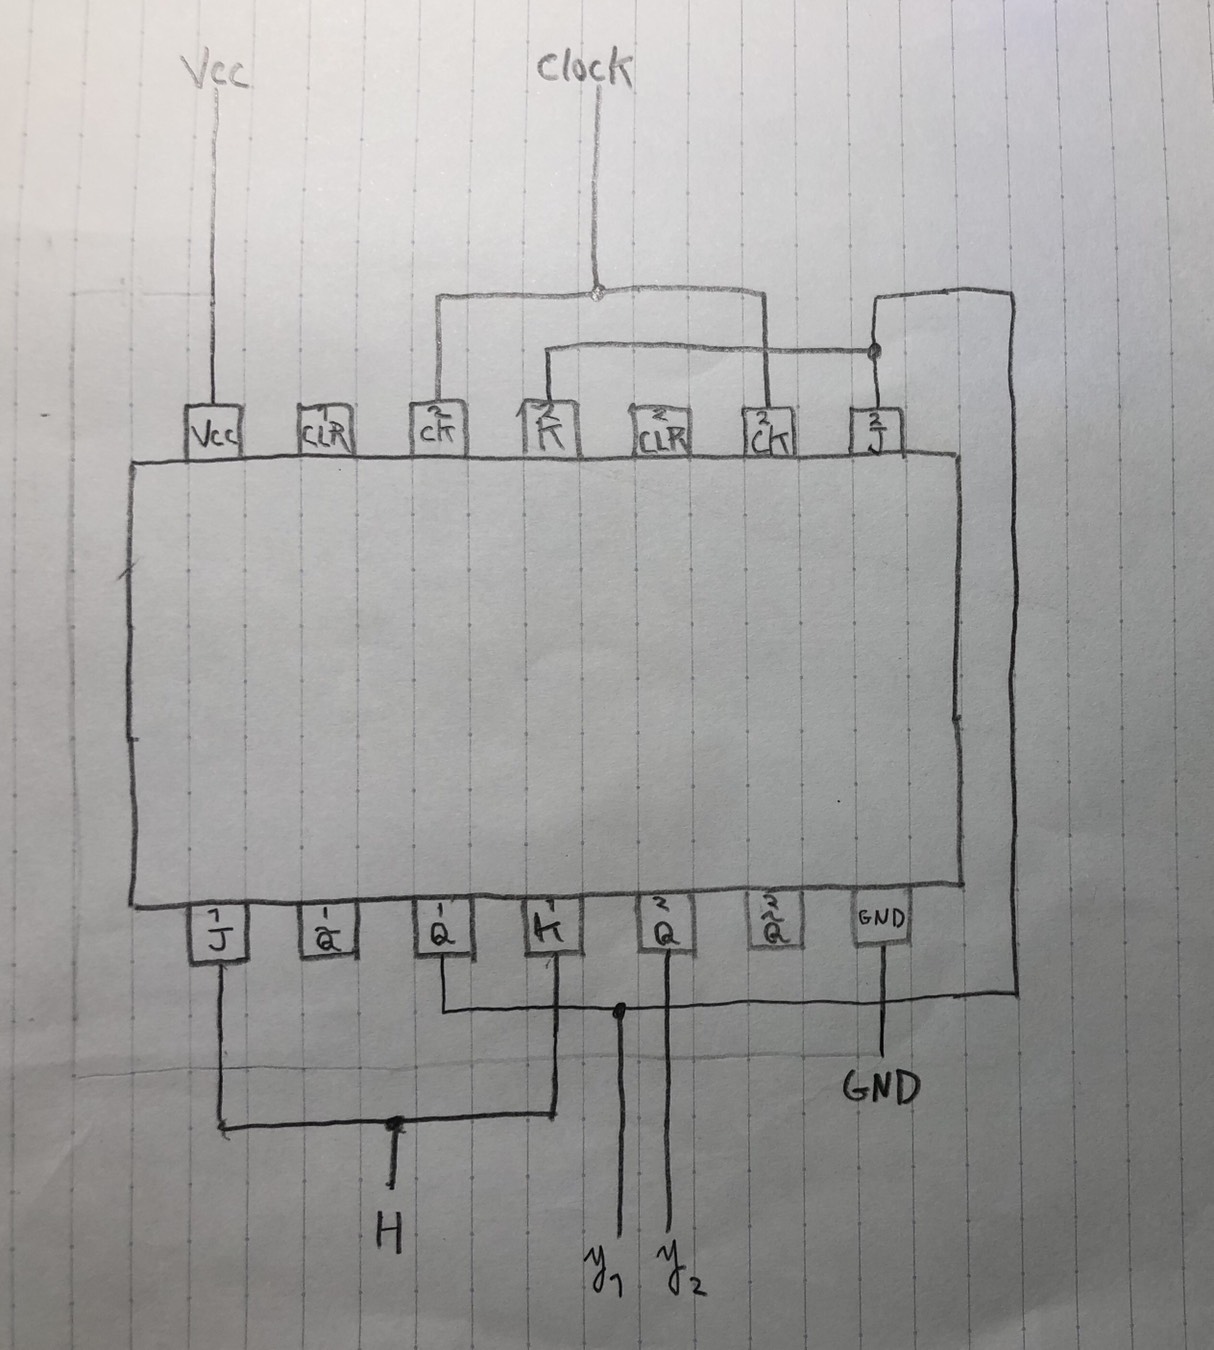 Vcc
Clock
Vcc
1 CLR
2 CK
2 K
2 CLR
2 CK
2 J
1 J
1 Q̄
1 Q
1 K
2 Q
2 Q̄
GND
GND
H
y1
y2